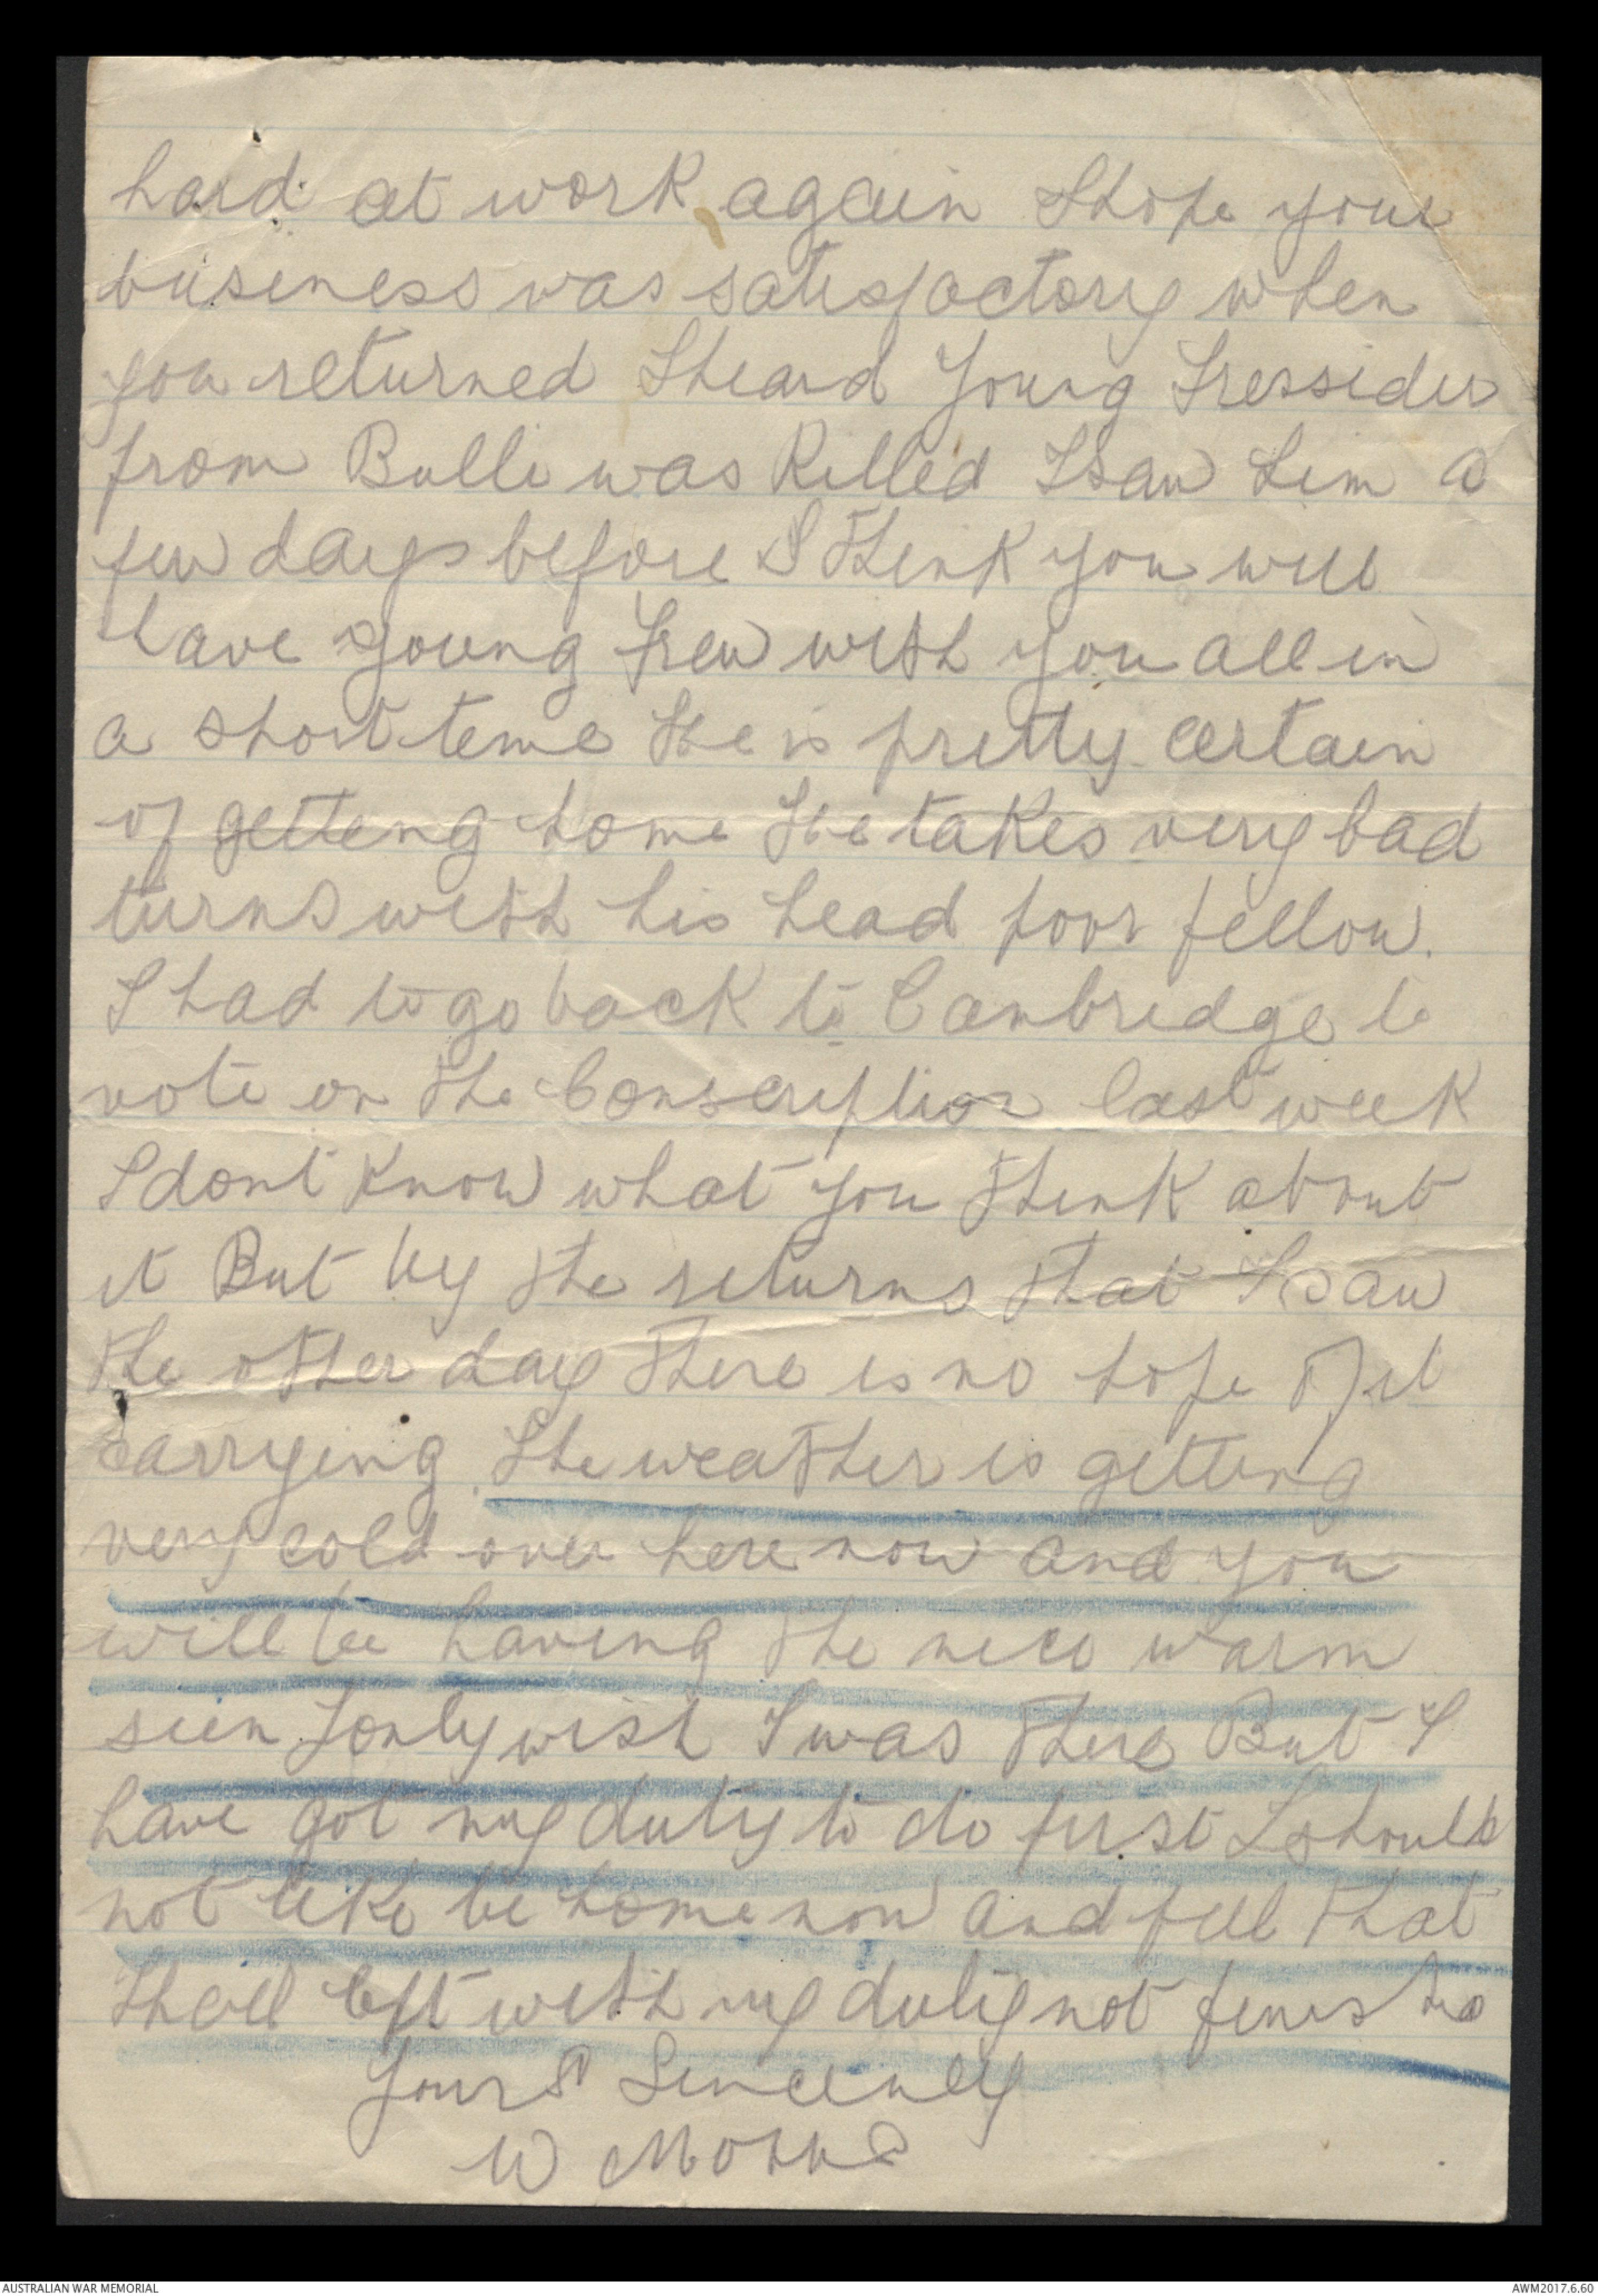 hard at work again I hope your
business was satisfactory when
you returned I heard Young Tressider
from Bulli was Killed I Saw him a
few days before I think you will
have young Frew with you all in
a short time He is pretty certain
of getting home He takes very bad
turns with his head poor fellow.
I had to go back to Cambridge to
vote on the Conscription last week
I dont Know what you think about
it But by the returns that I saw
the other day there is no hope of it
carrying. The weather is getting
very cold over here now and you
will be having the nice warm
sun I only wish I was there But I
have got my duty to do first I should
not like be home now and feel that
I had left with my duty not finished
Yours Sincerely
W
AUSTRALIAN WAR MEMORIAL
AWM2017.6.60